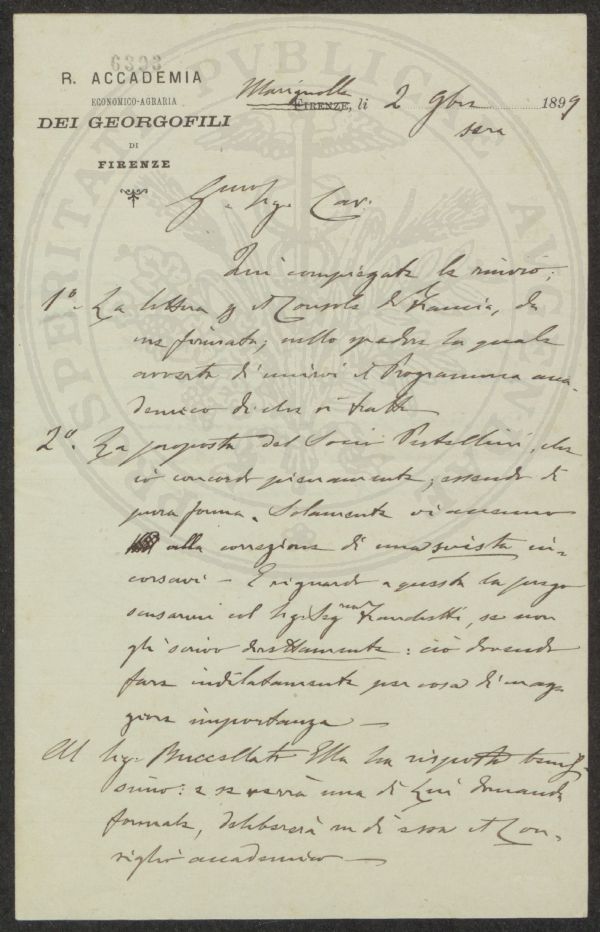 6393
R. ACCADEMIA
ECONOMICO-AGRARIA
DEI GEORGOFILI
DI
FIRENZE
Marignolle
FIRENZE, lì 2 9bre 1899
sera
Sig. Cav.
Qui compiegate le rinvio;
1º. La lettera pel Console di Francia, da
me firmata; nello spedire la quale
avverta di unirvi il Programma acca-
demico di che si tratta
2º. La proposta del Socio Pestellini, che
io concordo pienamente; essendo di
pura forma. Solamente vi accenno
alla correzione di una svista in-
corsavi – E riguardo a questa la prego
scusarmi col Sig. Franchetti, se non
gli scrivo direttamente: ciò dovendo
fare indilatamente per cosa di mag-
giore importanza —
Al Sig. Buccellati Ella ha risposto benis-
simo: e se verrà una di Lui domanda
formale, delibererà su di essa il Con-
siglio accademico —
PROSPERITATI PVBLICAE AVGENDAE